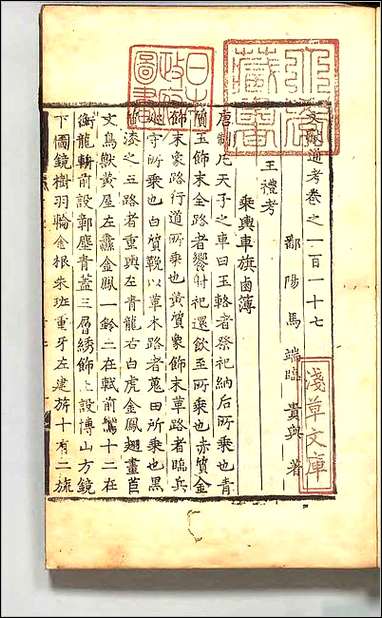 文獻通考卷之一百一十七
鄱陽馬端臨貴與著
王禮考
乘輿車旗鹵簿
唐制凡天子之車曰玉輅者祭祀納后所乘也青
質玉飾末金路者饗射祀還飲至所乘也赤質金
飾末象路行道所乘也黃質象飾末革路者臨兵
巡守所乘也白質鞔以革木路者蒐田所乘也黑
質漆之五路者重輿左青龍右白虎金鳳翅畫苣
文鳥獸黃屋左纛金鳳一鈴二在軾前鸞十二在
衡龍輈前設鄣塵青蓋三層綉飾上設博山方鏡
下圓鏡樹羽輪金根朱班重牙左建旂十有二旒
林氏藏書
日本政府圖書
淺草文庫